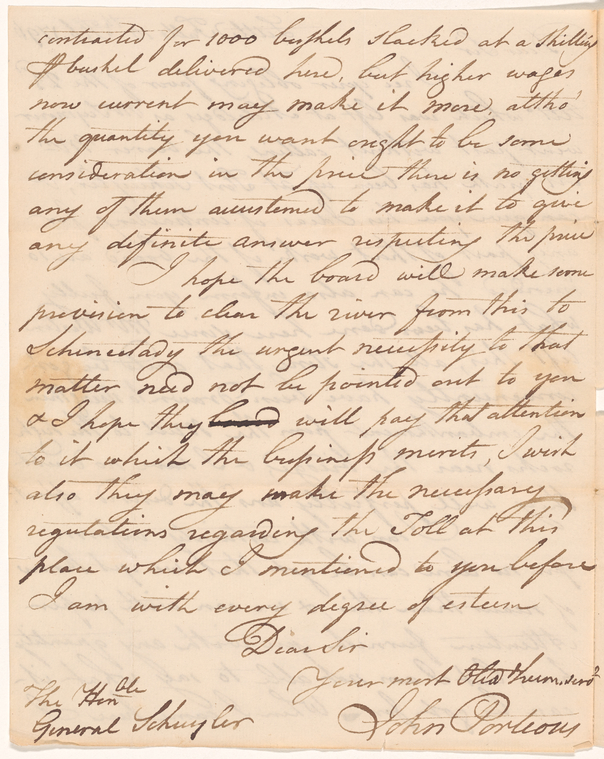 contracted for 1000 bushels slacked at a shilling
⅌ bushel delivered here, but higher wages
now current may make it more, altho'
the quantity you want ought to be some
consideration in the price there is no getting
any of them accustomed to make it to give
any definite answer respecting the price
I hope the board will make some
provision to clear the river from this to
Schenectady the urgent necessity to that
matter need not be pointed out to you
& I hope they board will pay that attention
to it which the bussiness merits, I wish
also they may make the necessary
regulations regarding the Toll at this
place which I mentioned to you before
I am with every degree of esteem
Dear Sir
Your most Obed hum. servt
The Honble
General Schuyler
John Porteous